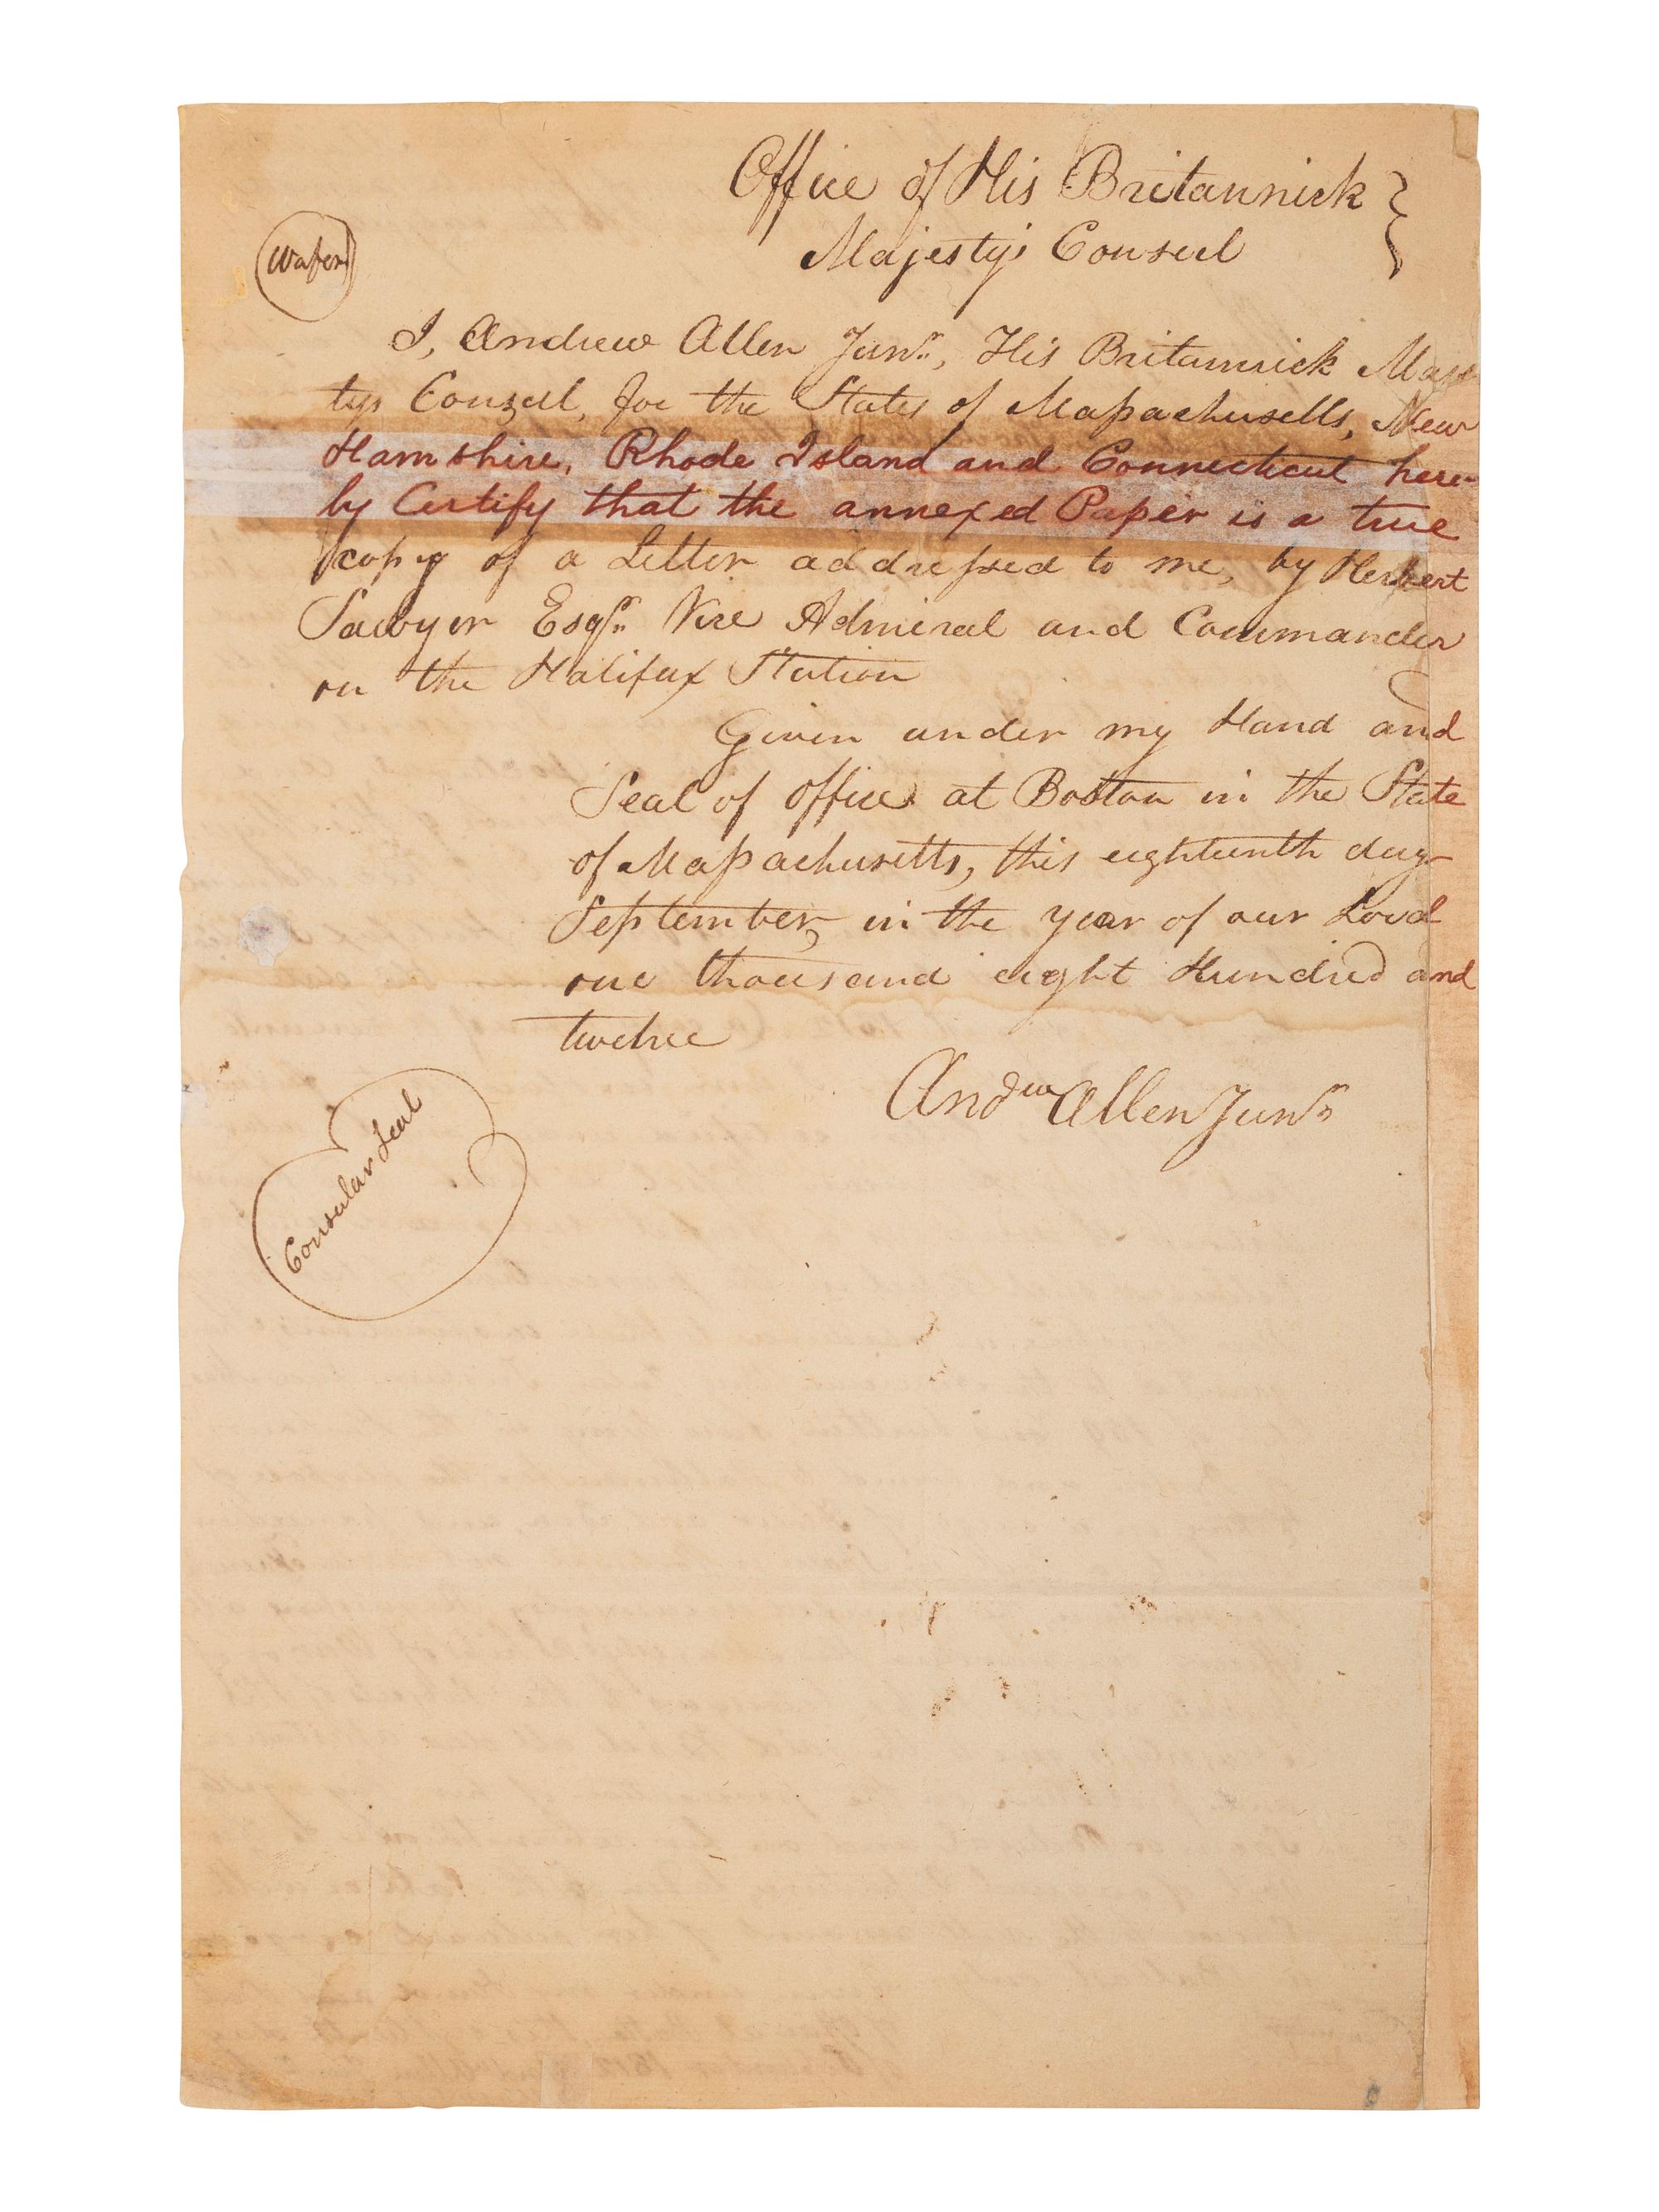 Office of His Britannick
Majestys Consul
Wafer
I, Andrew Allen Junr., His Britannick Majes
tys Consul, for the States of Massachusetts, New
Hamshire, Rhode Island and Connecticut here-
by Certify that the annexed Paper is a true
copy of a Letter addressed to me, by Herbert
Sawyer Esqr. Vice Admiral and Commander
on the Halifax Station
Given under my Hand and
Seal of office at Boston in the State
of Massachusetts, this eighteenth day
September, in the year of our Lord
one thousand eight Hundred and
twelve
Andw Allen Junr
Consular Seal